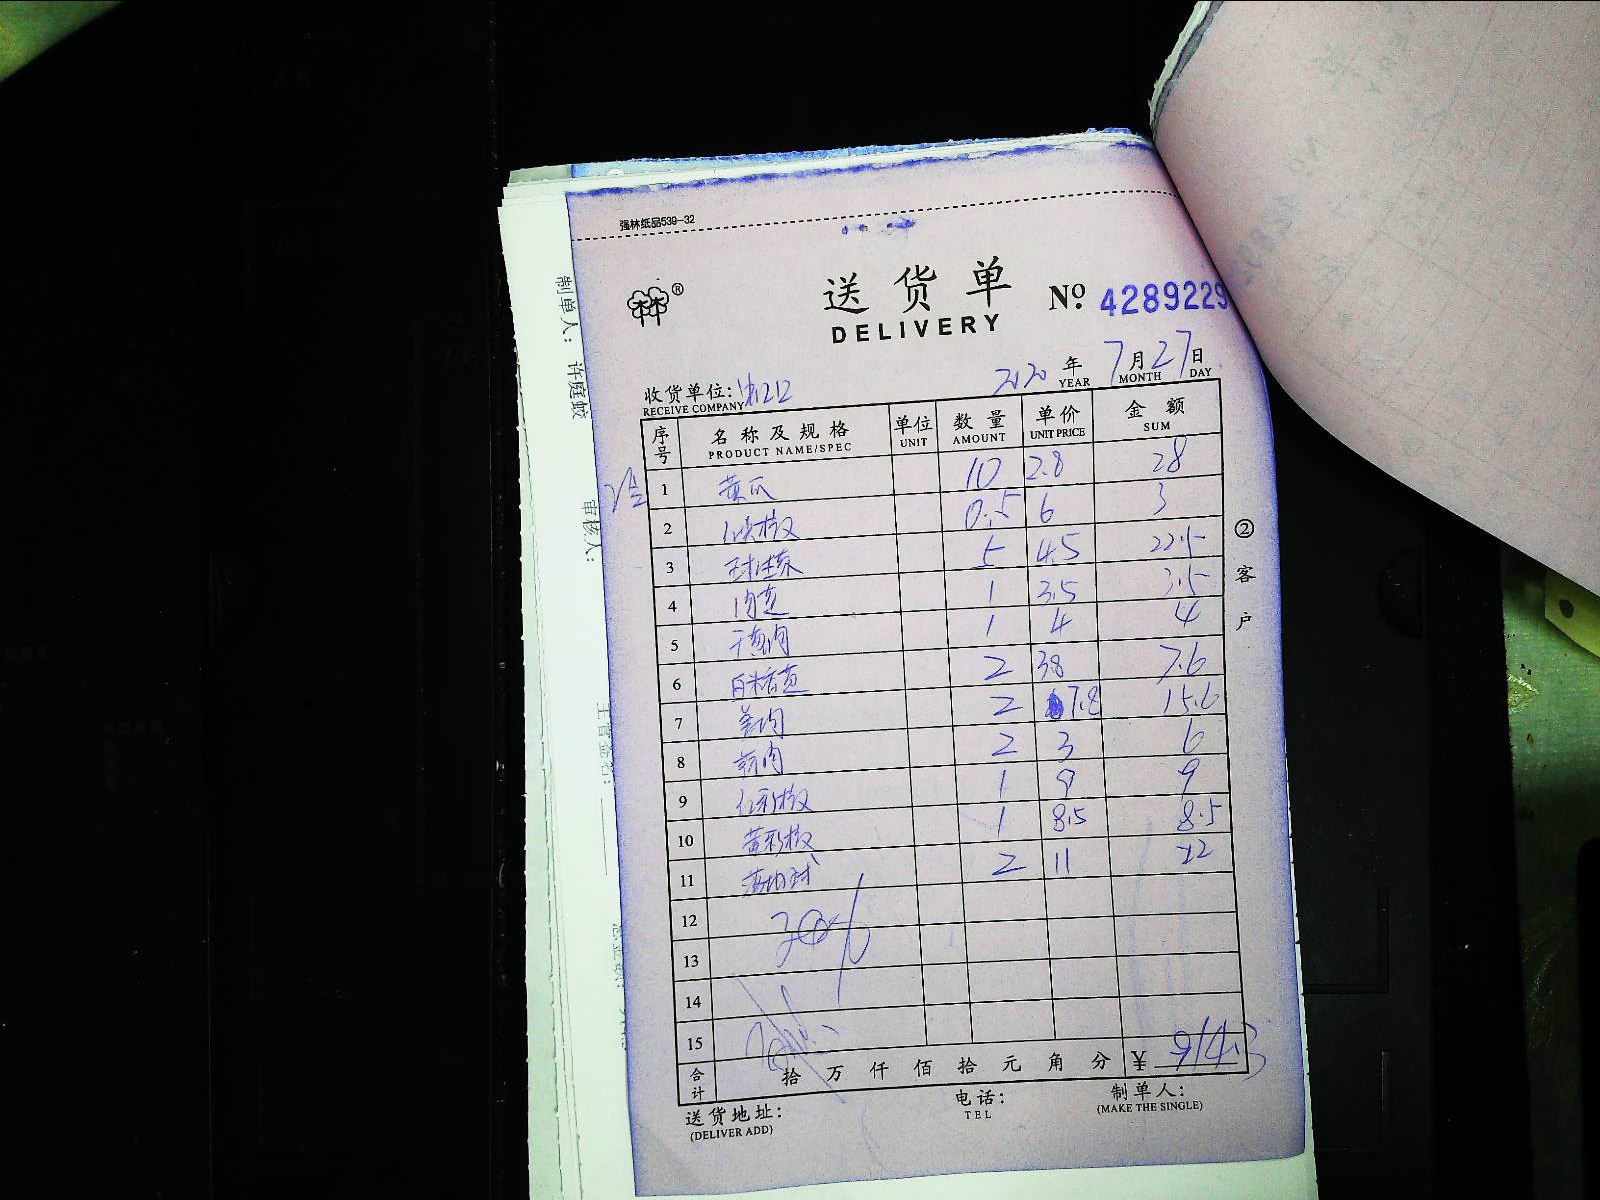 强林纸品539-32
®
送货单
DELIVERY
№ 4289229
2020 年 7 月 27 日
YEAR MONTH DAY
收货单位:
RECEIVE COMPANY
序号 名称及规格 单位 数量 单价 金额
PRODUCT NAME/SPEC UNIT AMOUNT UNIT PRICE SUM
1 黄瓜 10 2.8 28
2 0.5 6 3
3 球生菜 5 4.5 22.5
4 1 3.5 3.5
5 1 4 4
6 2 3.8 7.6
7 姜肉 2 7.8 15.6
8 蒜肉 2 3 6
9 红彩椒 1 9 9
10 黄彩椒 1 8.5 8.5
11 2 11 22
12
13
14
15
合计 拾 万 仟 佰 拾 元 角 分 ¥
送货地址:
(DELIVER ADD)
电话:
TEL
制单人:
(MAKE THE SINGLE)
②客户
制单人: 许庭蛟
审核人: